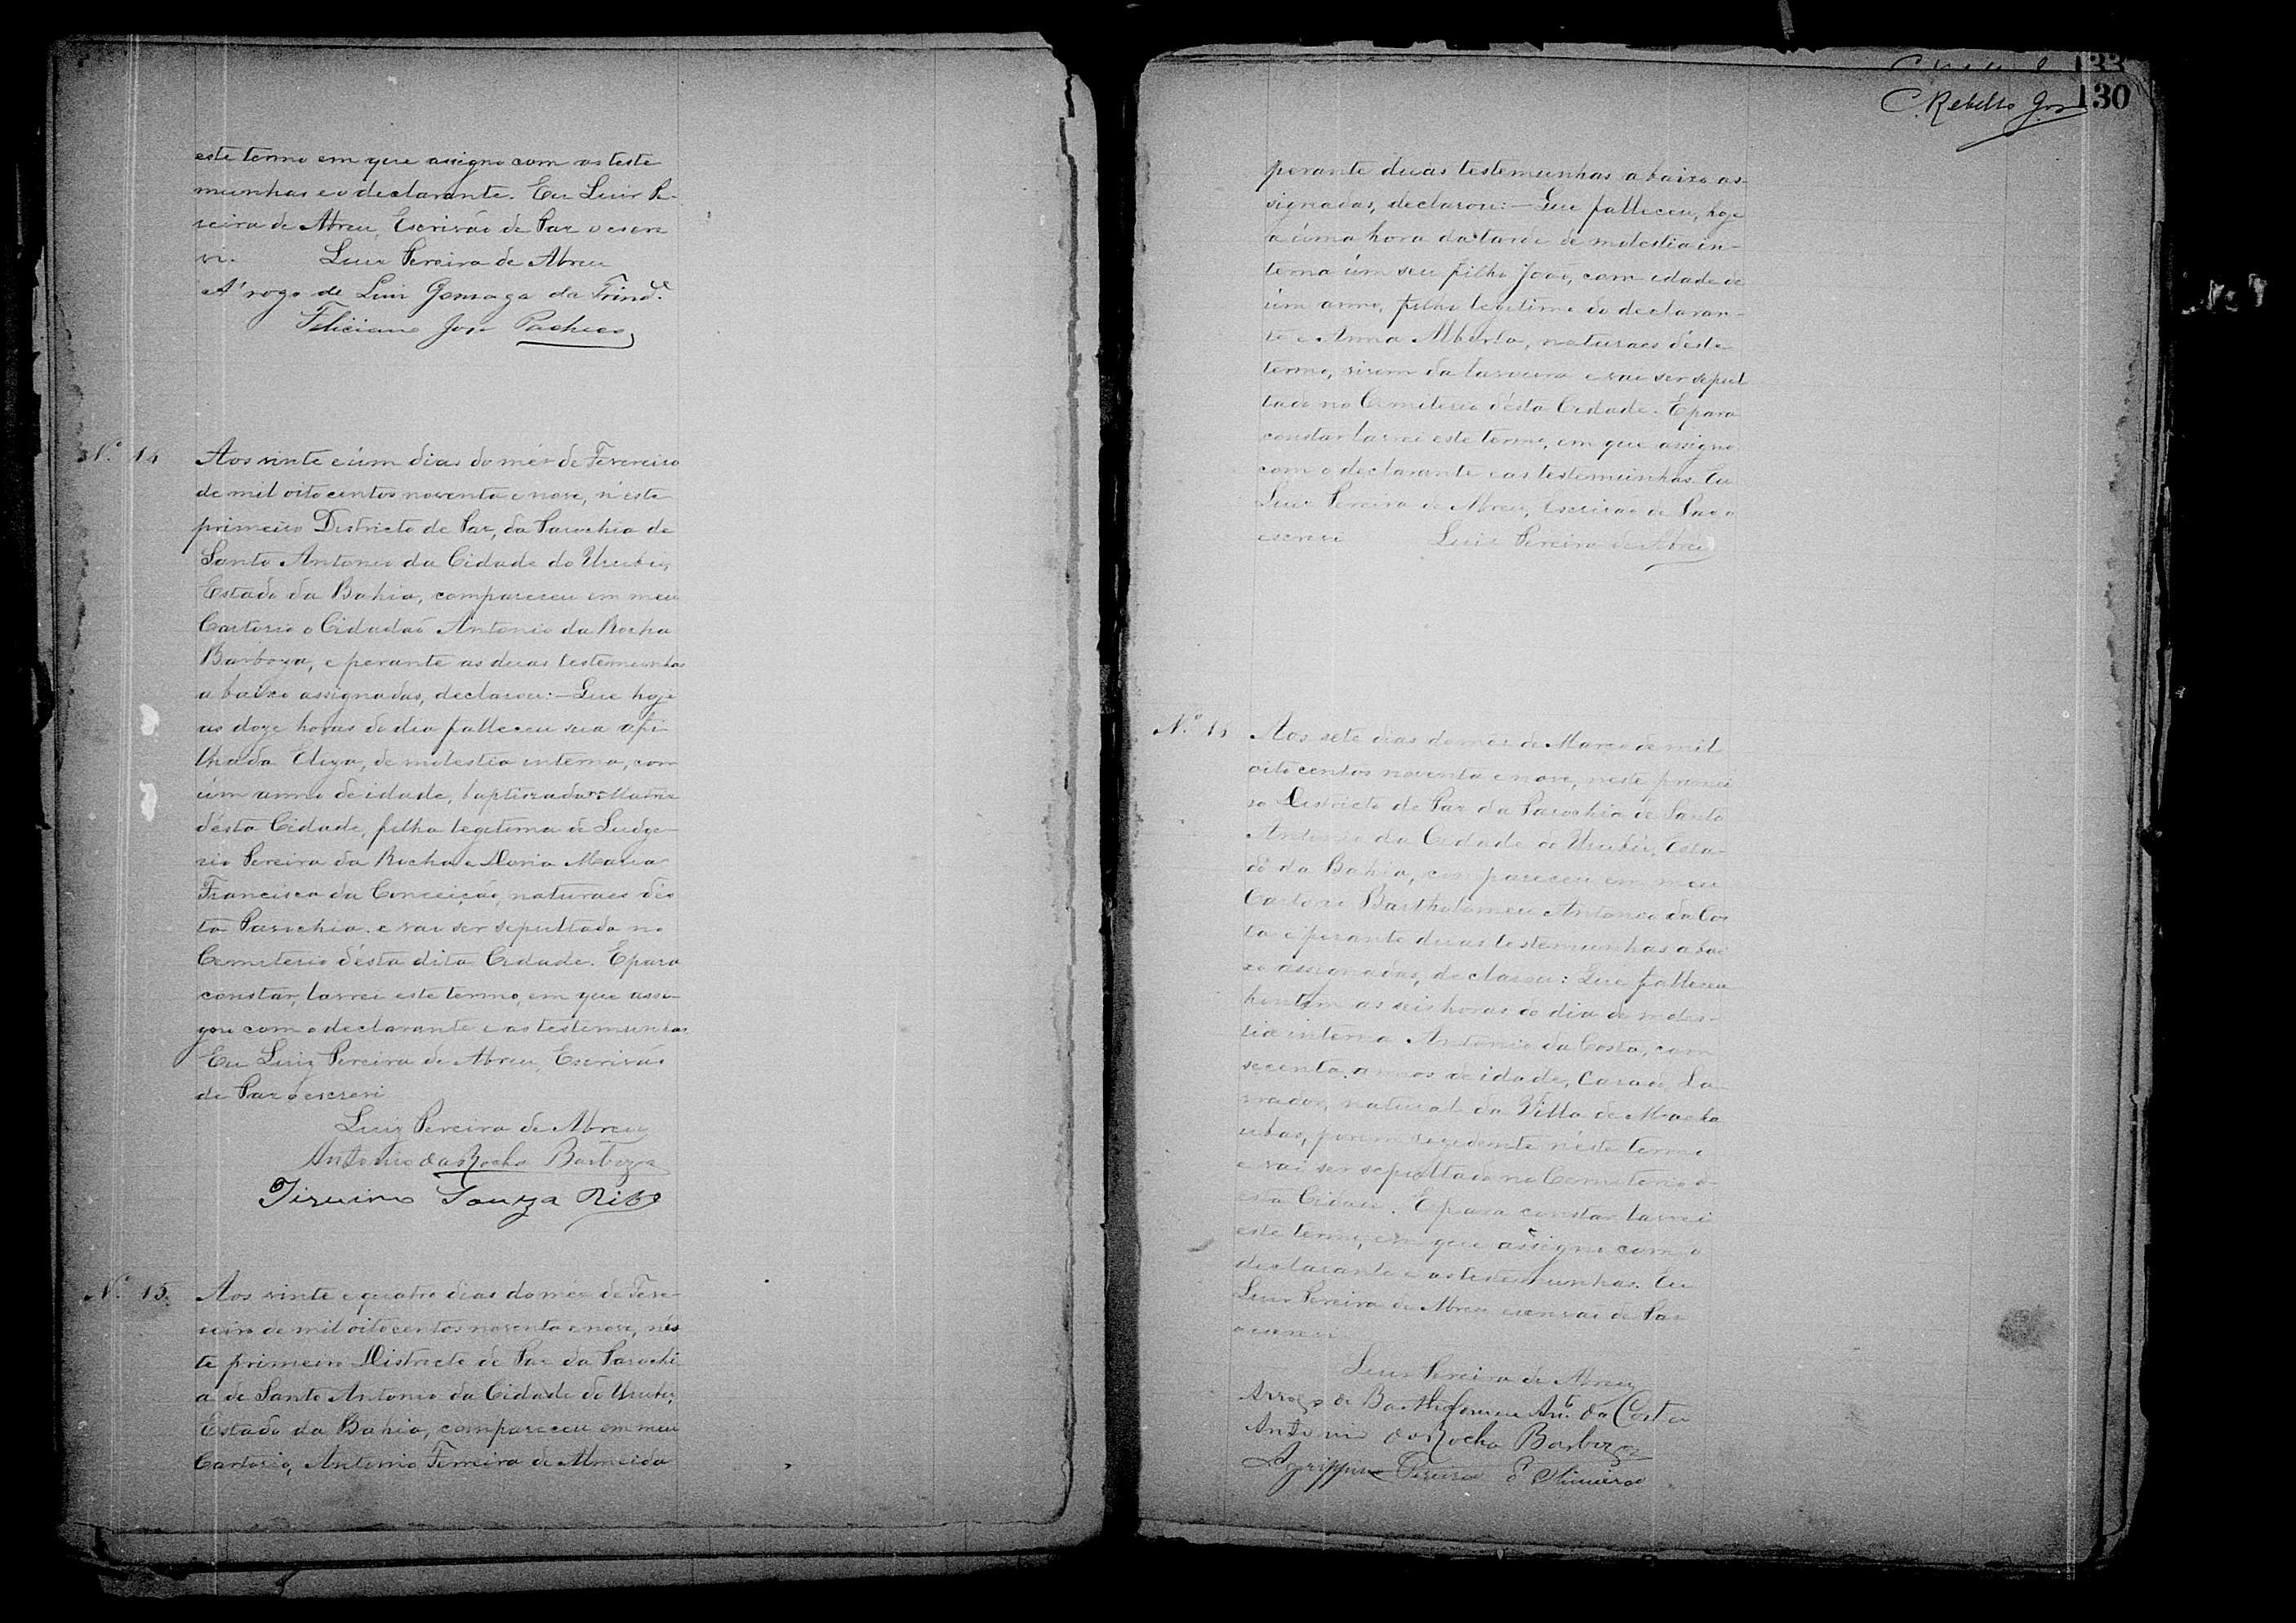 este termo em que assigno com as teste
munhas e o declarante. Eu Luiz Pe-
reira de Abreu, Escrivão de Paz o escre
vi. Luiz Pereira de Abreu
A' rogo de Luiz Gonzaga da Trind.e
Feliciano José Pacheco
N.º 14 Aos vinte e úm dias do mês de Fevereiro
de mil oito centos noventa e nove, n'este
primeiro Districto de Paz, da Parochia de
Santo Antonio da Cidade do Urubú,
Estado da Bahia, compareceu em meu
Cartorio o Cidadaõ Antonio da Rocha
Barboza, e perante as duas testemunhas
a baixo assignadas, declarou:— Que hoje
as doze horas do dia falleceu sua afi-
lhada Eliza, de molestia interna, com
úm anno de idade, baptizada na Matriz
désta Cidade, filha legitima de Ludge-
rio Pereira da Rocha e Dona Maria
Francisca da Conceição, naturaes dés
ta Parochia. e vai ser sepultada no
Cemiterio désta dita Cidade. E para
constar, lavrei este termo, em que assi-
gno com o declarante e as testemunhas.
Eu Luiz Pereira de Abreu, Escrivão
de Paz o escrevi
Luiz Pereira de Abreu
Antonio da Rocha Barboza
Souza
N.º 15. Aos vinte e quatro dias do mês de Feve-
reiro de mil oito centos noventa e nove, nés
te primeiro Districto de Paz da Parochi
a de Santo Antonio da Cidade do Urubú,
Estado da Bahia, compareceu em meu
Cartorio, Antonio Ferreira de Almeida
133
C. Rebello 130
perante duas testemunhas a baixo as-
signadas, declarou:— Que falleceu, hoje
a úma hora da tarde de molestia in-
terna úm seu filho João, com idade de
úm anno, filho legitimo do declaran-
te e Anna Alberta, naturaes déste
termo, vivem da lavoura e vai ser sepul
tado no Cemiterio désta Cidade. E para
constar lavrei este termo, em que assigno
com o declarante e as testemunhas. Eu
Luiz Pereira de Abreu, Escrivão de Paz o
escrevi Luiz Pereira de Abreu
N.º Aos sete dias do mês de Março de mil
oito centos noventa e nove, neste primei
ro Districto de Paz da Parochia de Santo
Antonio da Cidade do Urubú, Esta-
do da Bahia, compareceu em meu
Cartorio Bartholomeu Antonio da Cos
ta e perante duas testemunhas a bai
xo assignadas, declarou: Que falleceu
hontem as seis horas do dia de moles-
tia interna Antonio da Costa, com
secenta annos de idade, Casado, La-
vrador, natural da Villa de Macha
ubas, porem rezidente n'este termo
e vai ser sepultado no Cemiterio d-
esta Cidade. E para constar lavrei
este termo, em que assigno com o
declarante e as testemunhas. Eu
Luiz Pereira de Abreu escrivão de Paz
o escrevi
Luiz Pereira de Abreu
Arrogo de Bartholomeu Ant.º da Costa
Antonio da Rocha Barboza
Agrippino Pereira